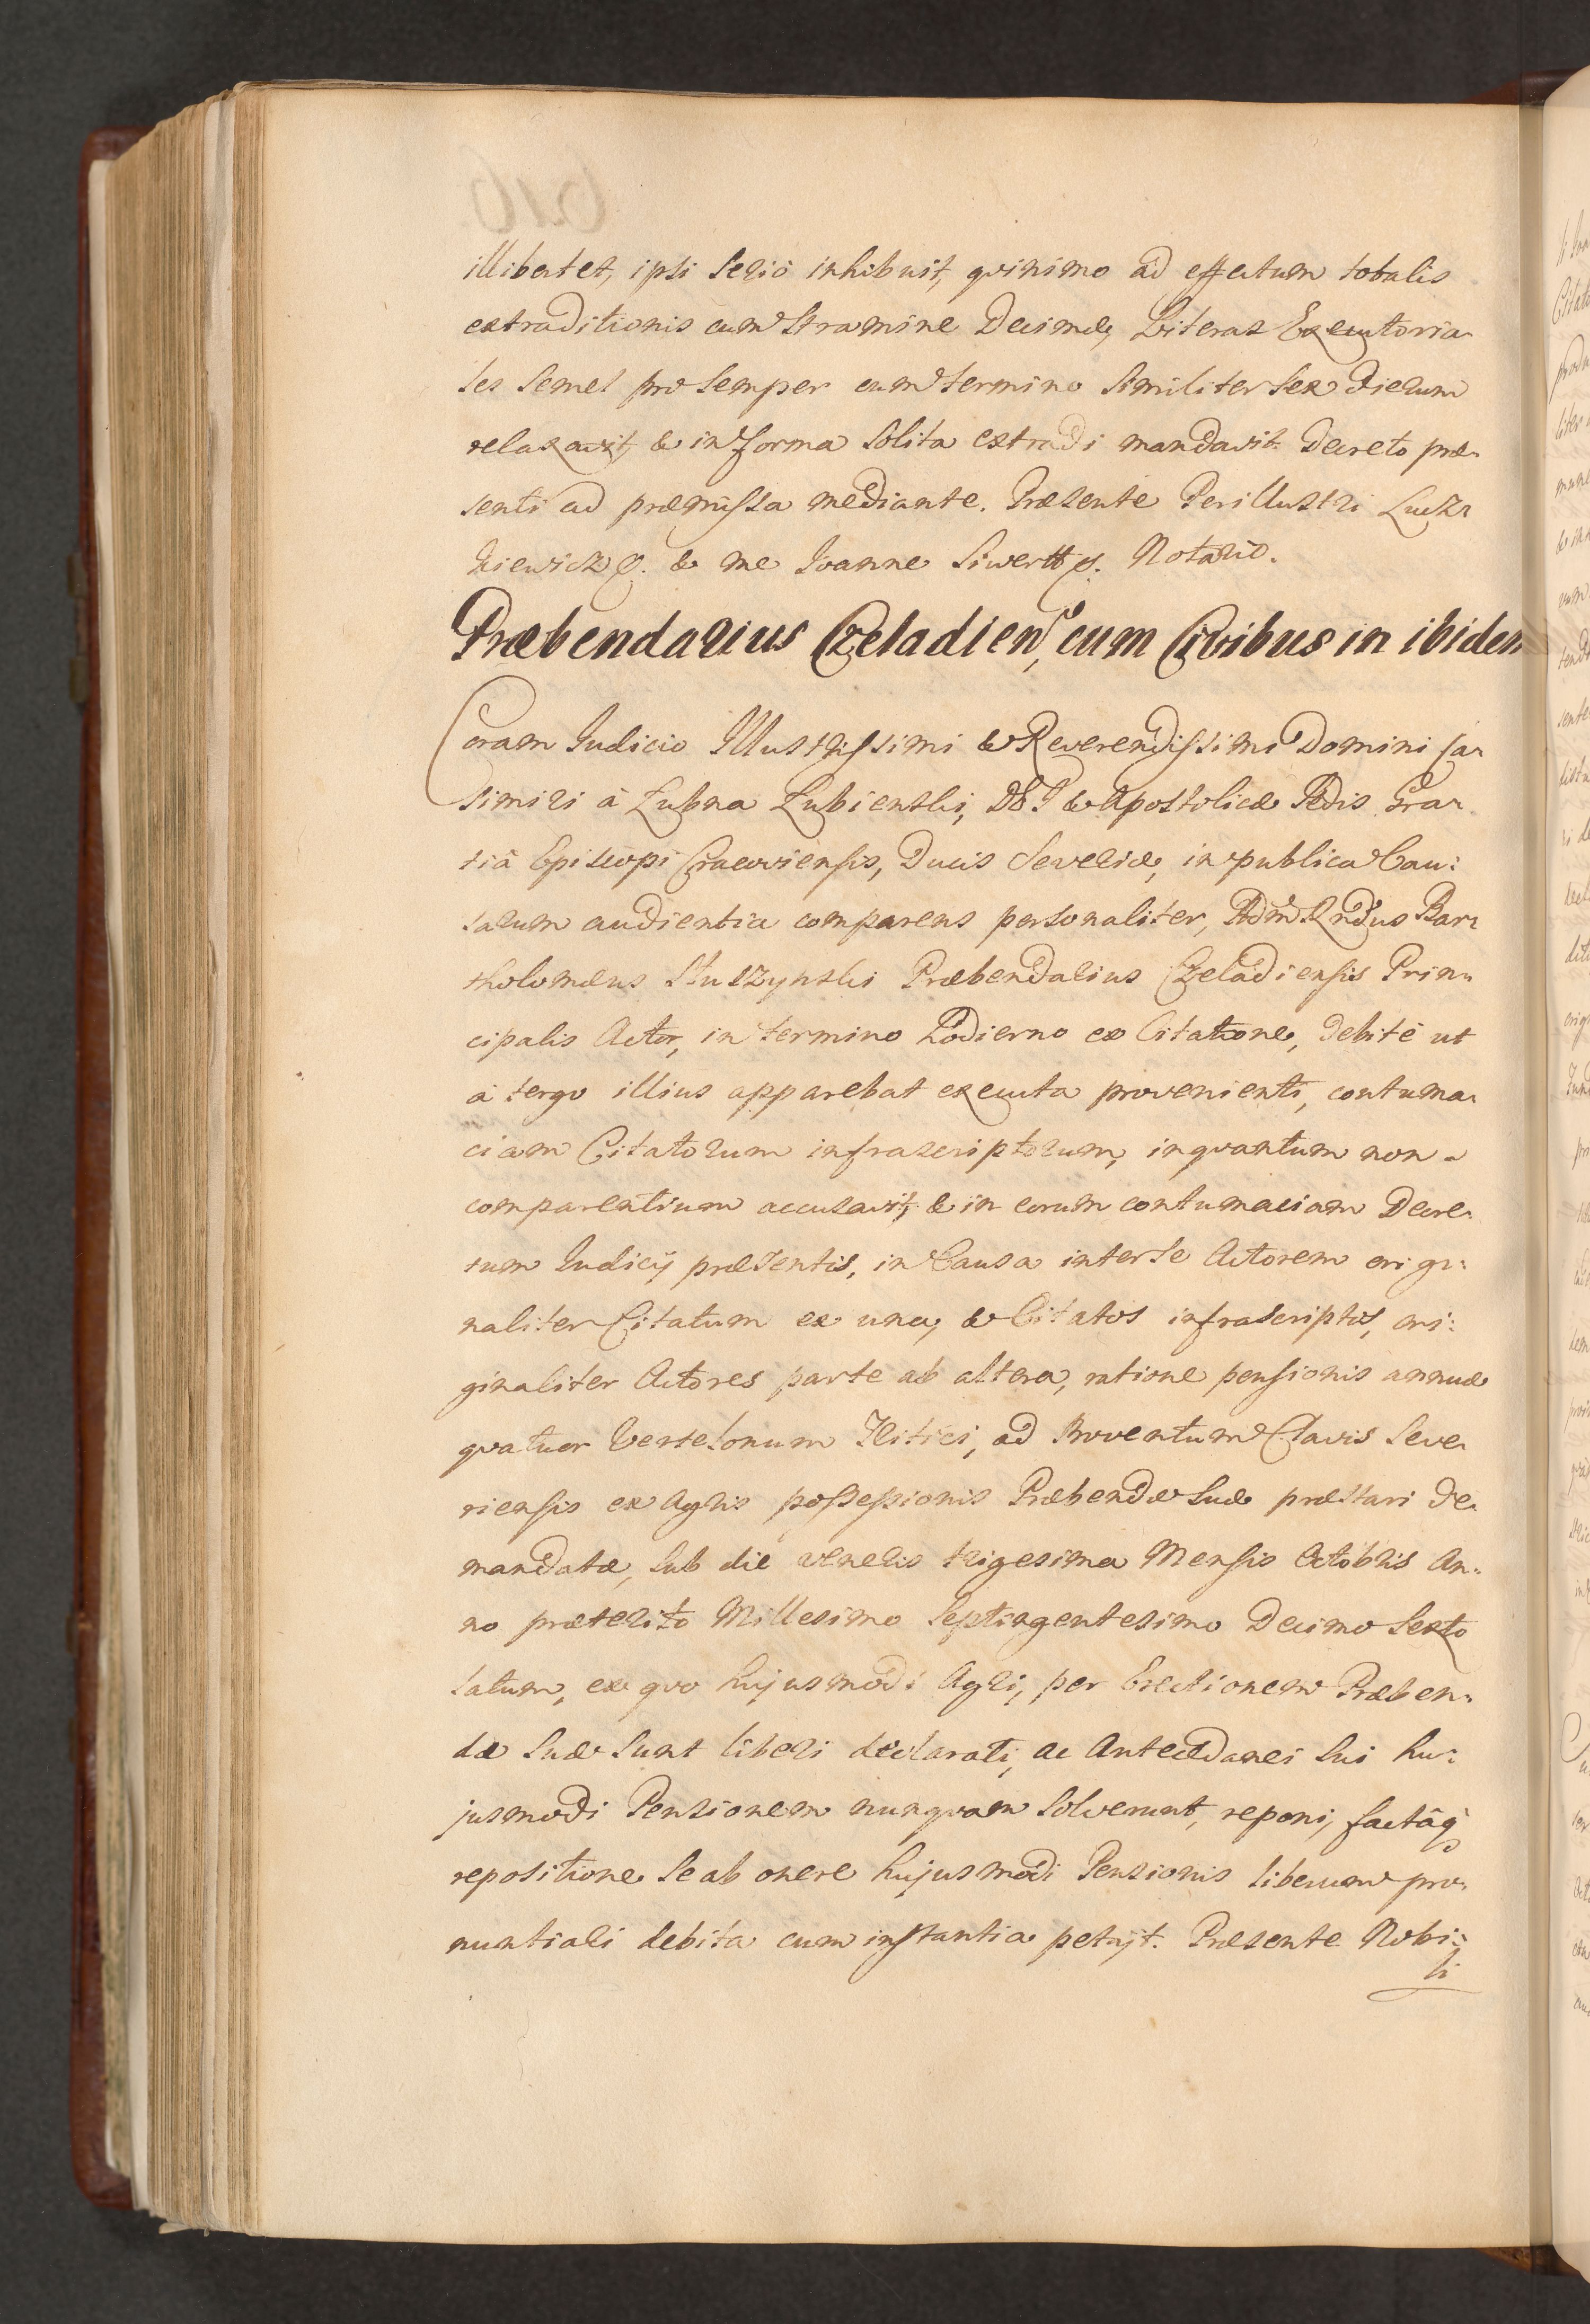 illibertet, ipsi serió inhibuit, qvinimo ad effectum totalis
extraditionis cum stramine Decimæ, Literas Executoria-
les semel pro semper cum termino similiter sex dierum
relaxavit, & in forma solita extradi mandavit. Decreto præ-
senti ad præmissa mediante. Præsente Perillustri Lucz-
kiewicz & me Ioanne Siwertt Notario.
Præbendarius Czeladien, cum Civibus in ibidem
Coram Iudicio Illustrissimi & Reverendissimi Domini Ca-
simiri á Łubna Łubienski, D & Apostolicæ Sedis Gra-
tiâ Episcopi Cracoviensis, Ducis Severiæ, in publica Cau-
sarum audientia comparens personaliter, Adm Rndus Bar-
tholomæus Sluszynski Præbendarius Czeladiensis Prin-
cipalis Actor, in termino hodierno ex Citatione, debité ut
á tergo illius apparebat executa provenienti, contuma-
ciam Citatorum infrascriptorum, inqvantum non-
comparentium accusavit, & in eorum contumaciam Decre-
tum Iudicij præsentis, in Causa inter se Actorem origi-
naliter Citatum ex una, & Citatos infrascriptos, ori-
ginaliter Actores parte ab altera, ratione pensionis annuæ
qvatuor Tritici, ad Proventum Clavis Seve-
riensis ex Agris possessionis Præbendæ suæ præstari de-
mandatæ, sub die Veneris trigesima Mensis Octobris An-
no præterito Millesimo Septingentesimo Decimo Sexto
latum, ex qvo hujusmodi Agri, per Erectionem Præben-
dæ suæ sunt liberi declarati, ac Antecedanei sui hu-
jusmodi Pensionem nunqvam solverunt, reponi, factâq
repositione se ab onere hujusmodi Pensionis liberum pro-
nuntiari debita cum instantia petijt. Præsente Nobi-
li